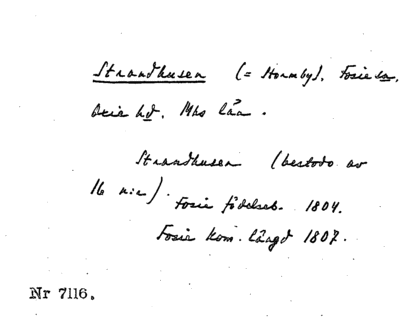 Strandhusen (= Hormby), Fosie sn,
Oxie hd, Mhs län.
Strandhusen (bestodo av
16 n:r)
Fosie födelseb. 1804.
Fosie kom. längd 1807.
Nr 7116.